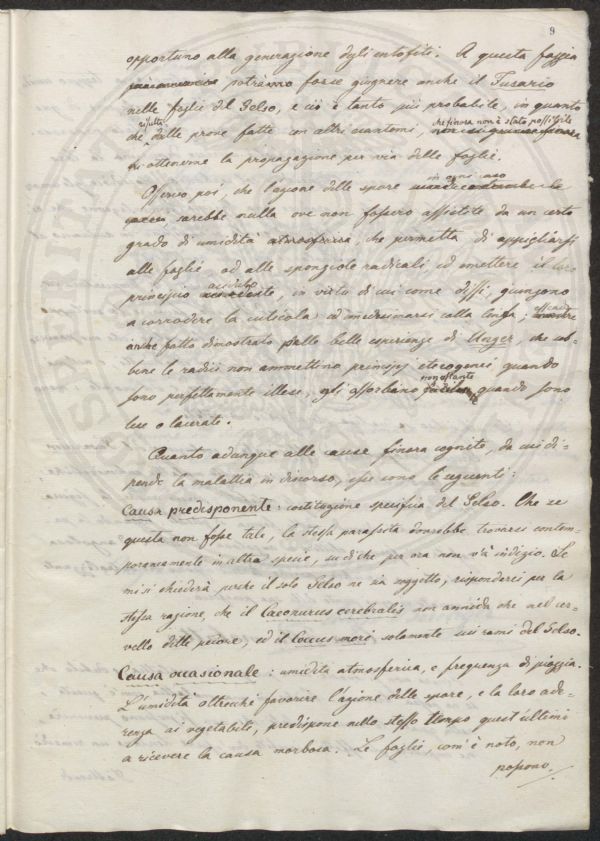 9
opportuno alla generazione degli entofiti. A questa foggia
potranno forse giugnere anche il Fusario
nelle foglie del Gelso, e ciò è tanto più probabile, in quanto
che risulta dalle prove fatte con altri che finora non è stato possibile
di ottenerne la propagazione per via delle foglie.
Osservo poi, che l'azione delle spore in ogni caso
sarebbe nulla ove non fossero assistite da un certo
grado di umidità atmosferica, che permetta di appigliarsi
alle foglie, od alle spongiole radicali, ed emettere il loro
principio acidulo, in virtù di cui come dissi, giungono
a corrodere la cuticola ed immedesimarsi colla linfa; essendo
anche fatto dimostrato dalle belle esperienze di Unger, che seb-
bene le radici non ammettino principj eterogenei quando
sono perfettamente illese, gli assorbano nonostante quando sono
lese o lacerate.
Quanto adunque alle cause finora cognite, da cui di-
pende la malattia in discorso, esse sono le seguenti:
Causa predisponente: costituzione specifica del Gelso. Che se
questa non fosse tale, la stessa parassita dovrebbe trovarsi contem-
poraneamente in altra specie, su di che per ora non v'è indizio. Se
mi si chiederà perchè il solo Gelso ne sia soggetto; risponderei per la
stessa ragione, che il Caenurus cerebralis non annida che nel cer-
vello delle pecore, ed il Coccus mori solamente sui rami del Gelso.
Causa occasionale: umidità atmosferica, e frequenza di pioggia.
L'umidità oltrechè favorire l'azione delle spore, e la loro ade-
renza ai vegetabili, predispone nello stesso tempo quest'ultimi
a ricevere la causa morbosa. Le foglie, com'è noto, non
possono